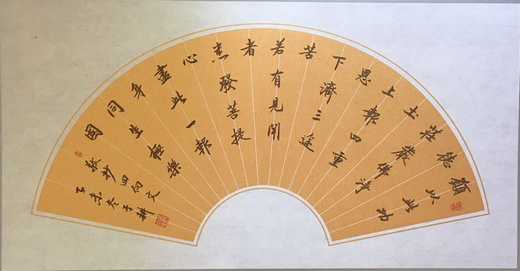 願以此功
德
莊嚴佛淨
土
上報四重
恩
下濟三途
苦
若有見聞
者
悉發菩提
心
盡此一報
身
同生極樂
國
敬抄回向文
冬子